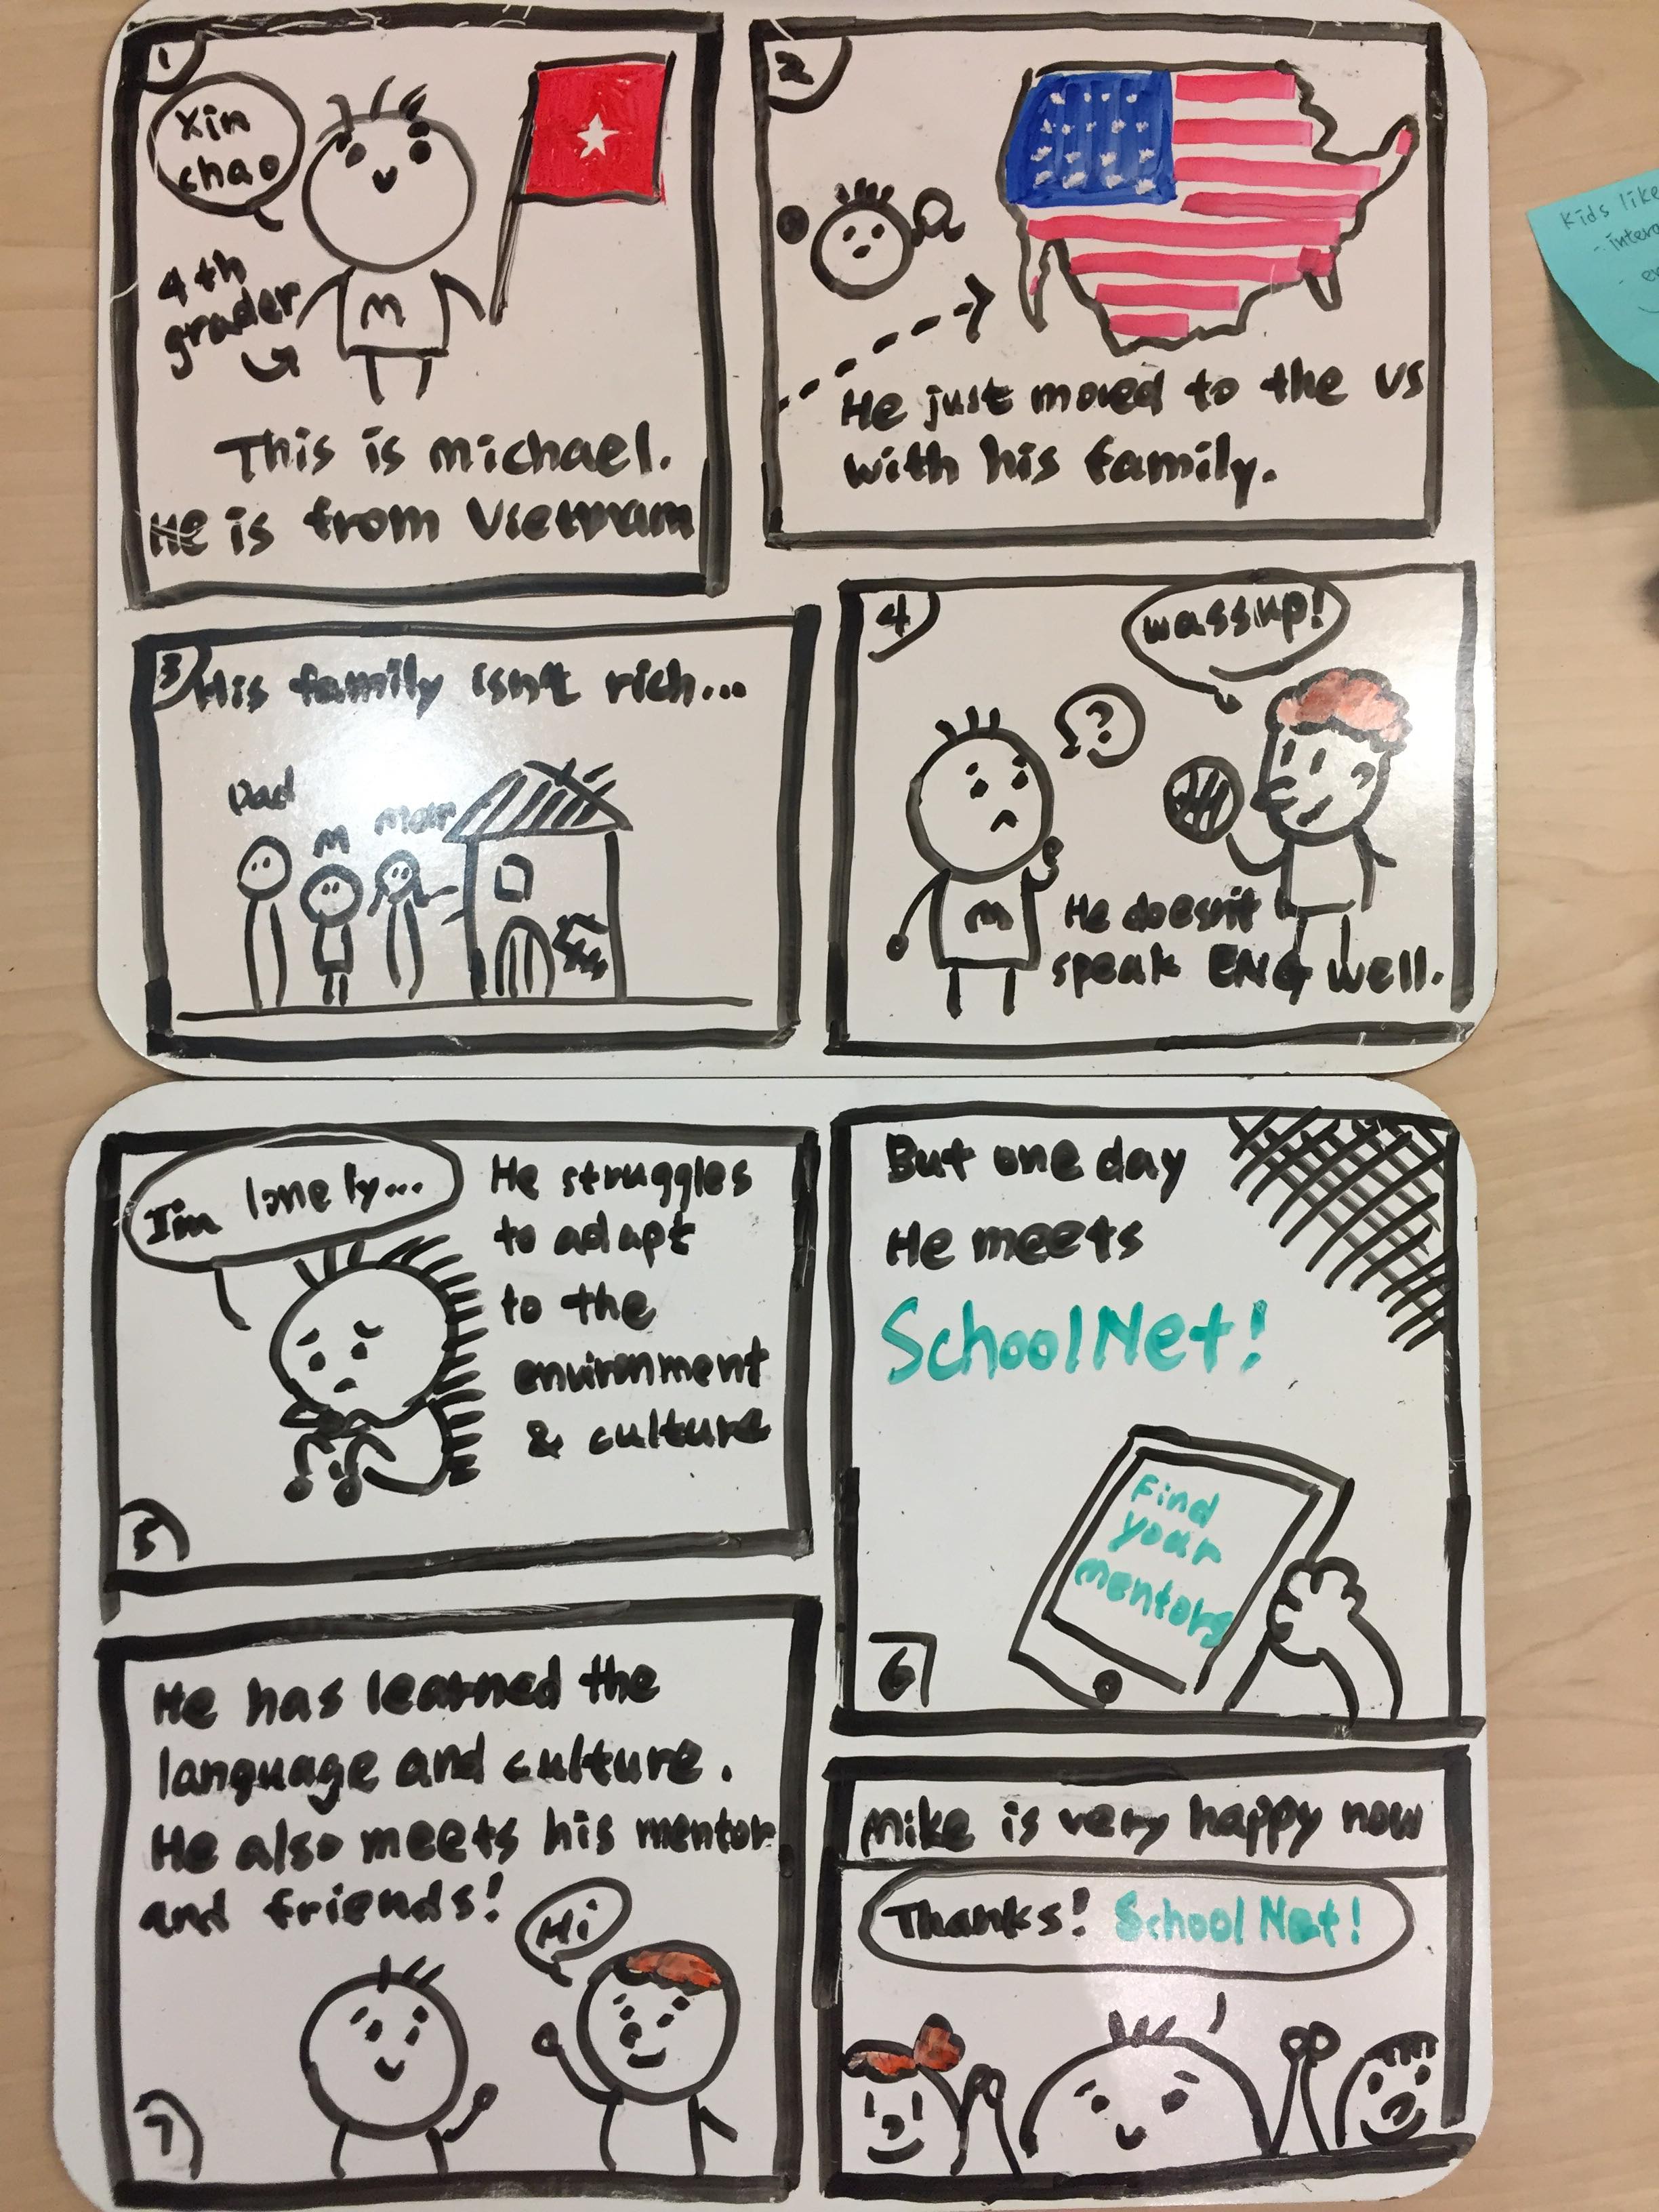 1
Xin
chao
4th
grader
M
This is michael.
He is from Vietnam
2
He just moved to the US
with his family.
3
His family isn't rich...
Dad
M
Mom
4
wassup!
?
M
He doesn't
speak ENG well.
I'm lonely...
He struggles
to adapt
to the
environment
& culture
5
But one day
He meets
SchoolNet!
Find
your
mentors
6
He has learned the
language and culture.
He also meets his mentor
and friends!
Hi
7
Mike is very happy now
Thanks! School Net!
Kids like